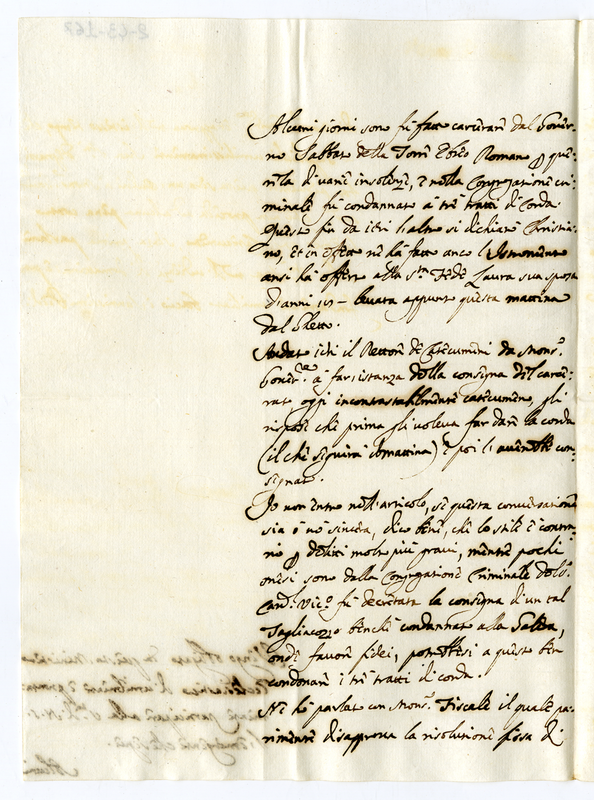 Alcuni giorni sono fù fatto carcerare dal Gover-
no Sabbato della Torre Ebreo Romano p que-
rela di varie insolenze, e nella Congregazione cri-
minale fù condannato a trè tratti di Corda.
Questo frà da i trè li altro si dichiarò Christia-
no, et in effetto ne hà fatto anco l'Istromento
anzi hà offerto alla S.ta Fede Laura sua sposa
d'anni 15 - levata appunto questa mattina
dal Ghetto.
Andato ieri il Rettore de Catecumeni da Mons.r
Gover.re a far istanza della consegna del carce-
rato oggi incontrastabilmente catecumeno, gli
rispose che prima gli voleva far dare la corda
(il che seguirà domattina) e poi l'averebbe con-
segnato.
Io non entro nell'articolo, se questa conversione
sia ò nò sincera, dico bene, che lo stile è contra-
rio p delitti molto più gravi, mentre pochi
mesi sono dalla Congregatione Criminale dell'
Card. Vic.o fù decretata la consegna d'un tal
Tagliacozzo benche condannato alla Galera,
onde favore fidei, potrebbesi a questo ben
condonare i trè tratti di corda.
Nè hò parlato con Mons.r Fiscale il quale pa-
rimente disapprova la risoluzione presa di